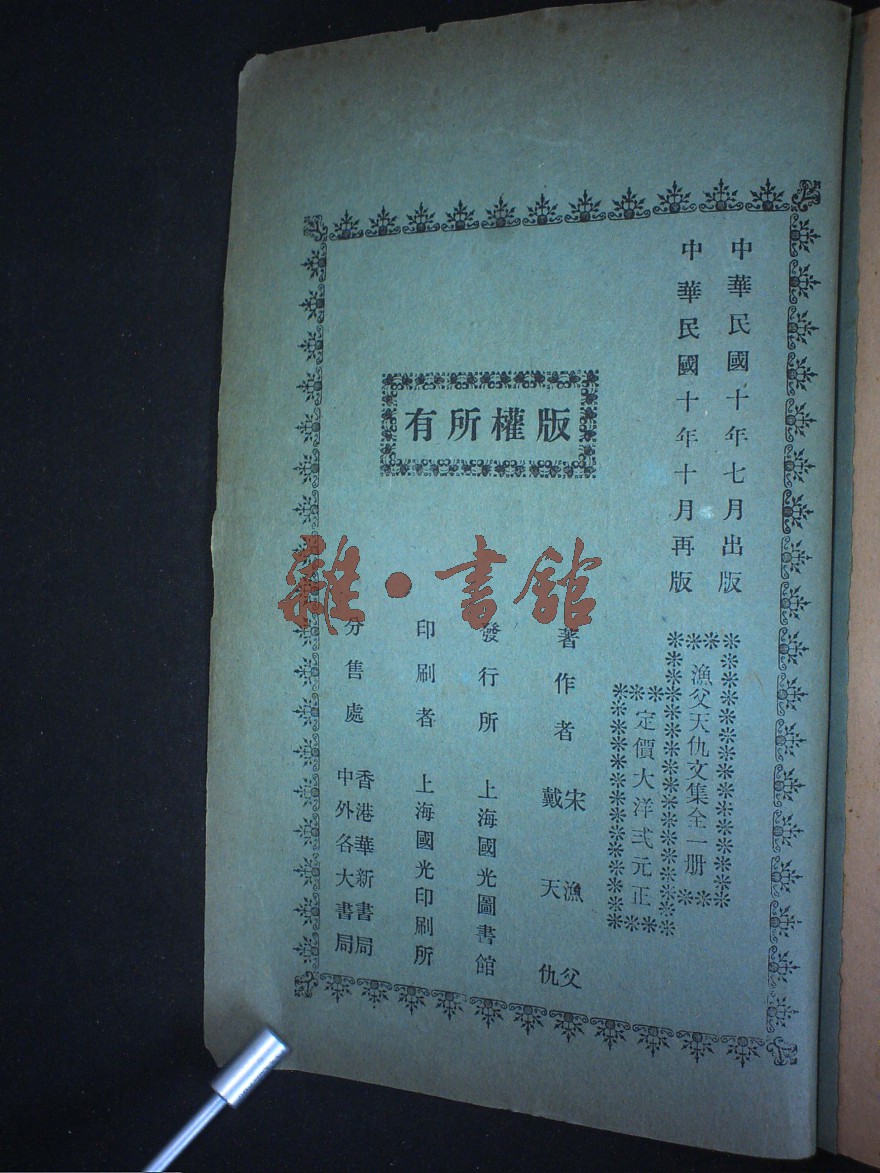 中華民國十年七月出版
中華民國十年十月再版
漁父天仇文集全一册
定價大洋弍元正
版權所有
著作者 宋漁父
戴天仇
發行所 上海國光圖書館
印刷者 上海國光印刷所
分售處 香港華新書局
中外各大書局
雜·書館